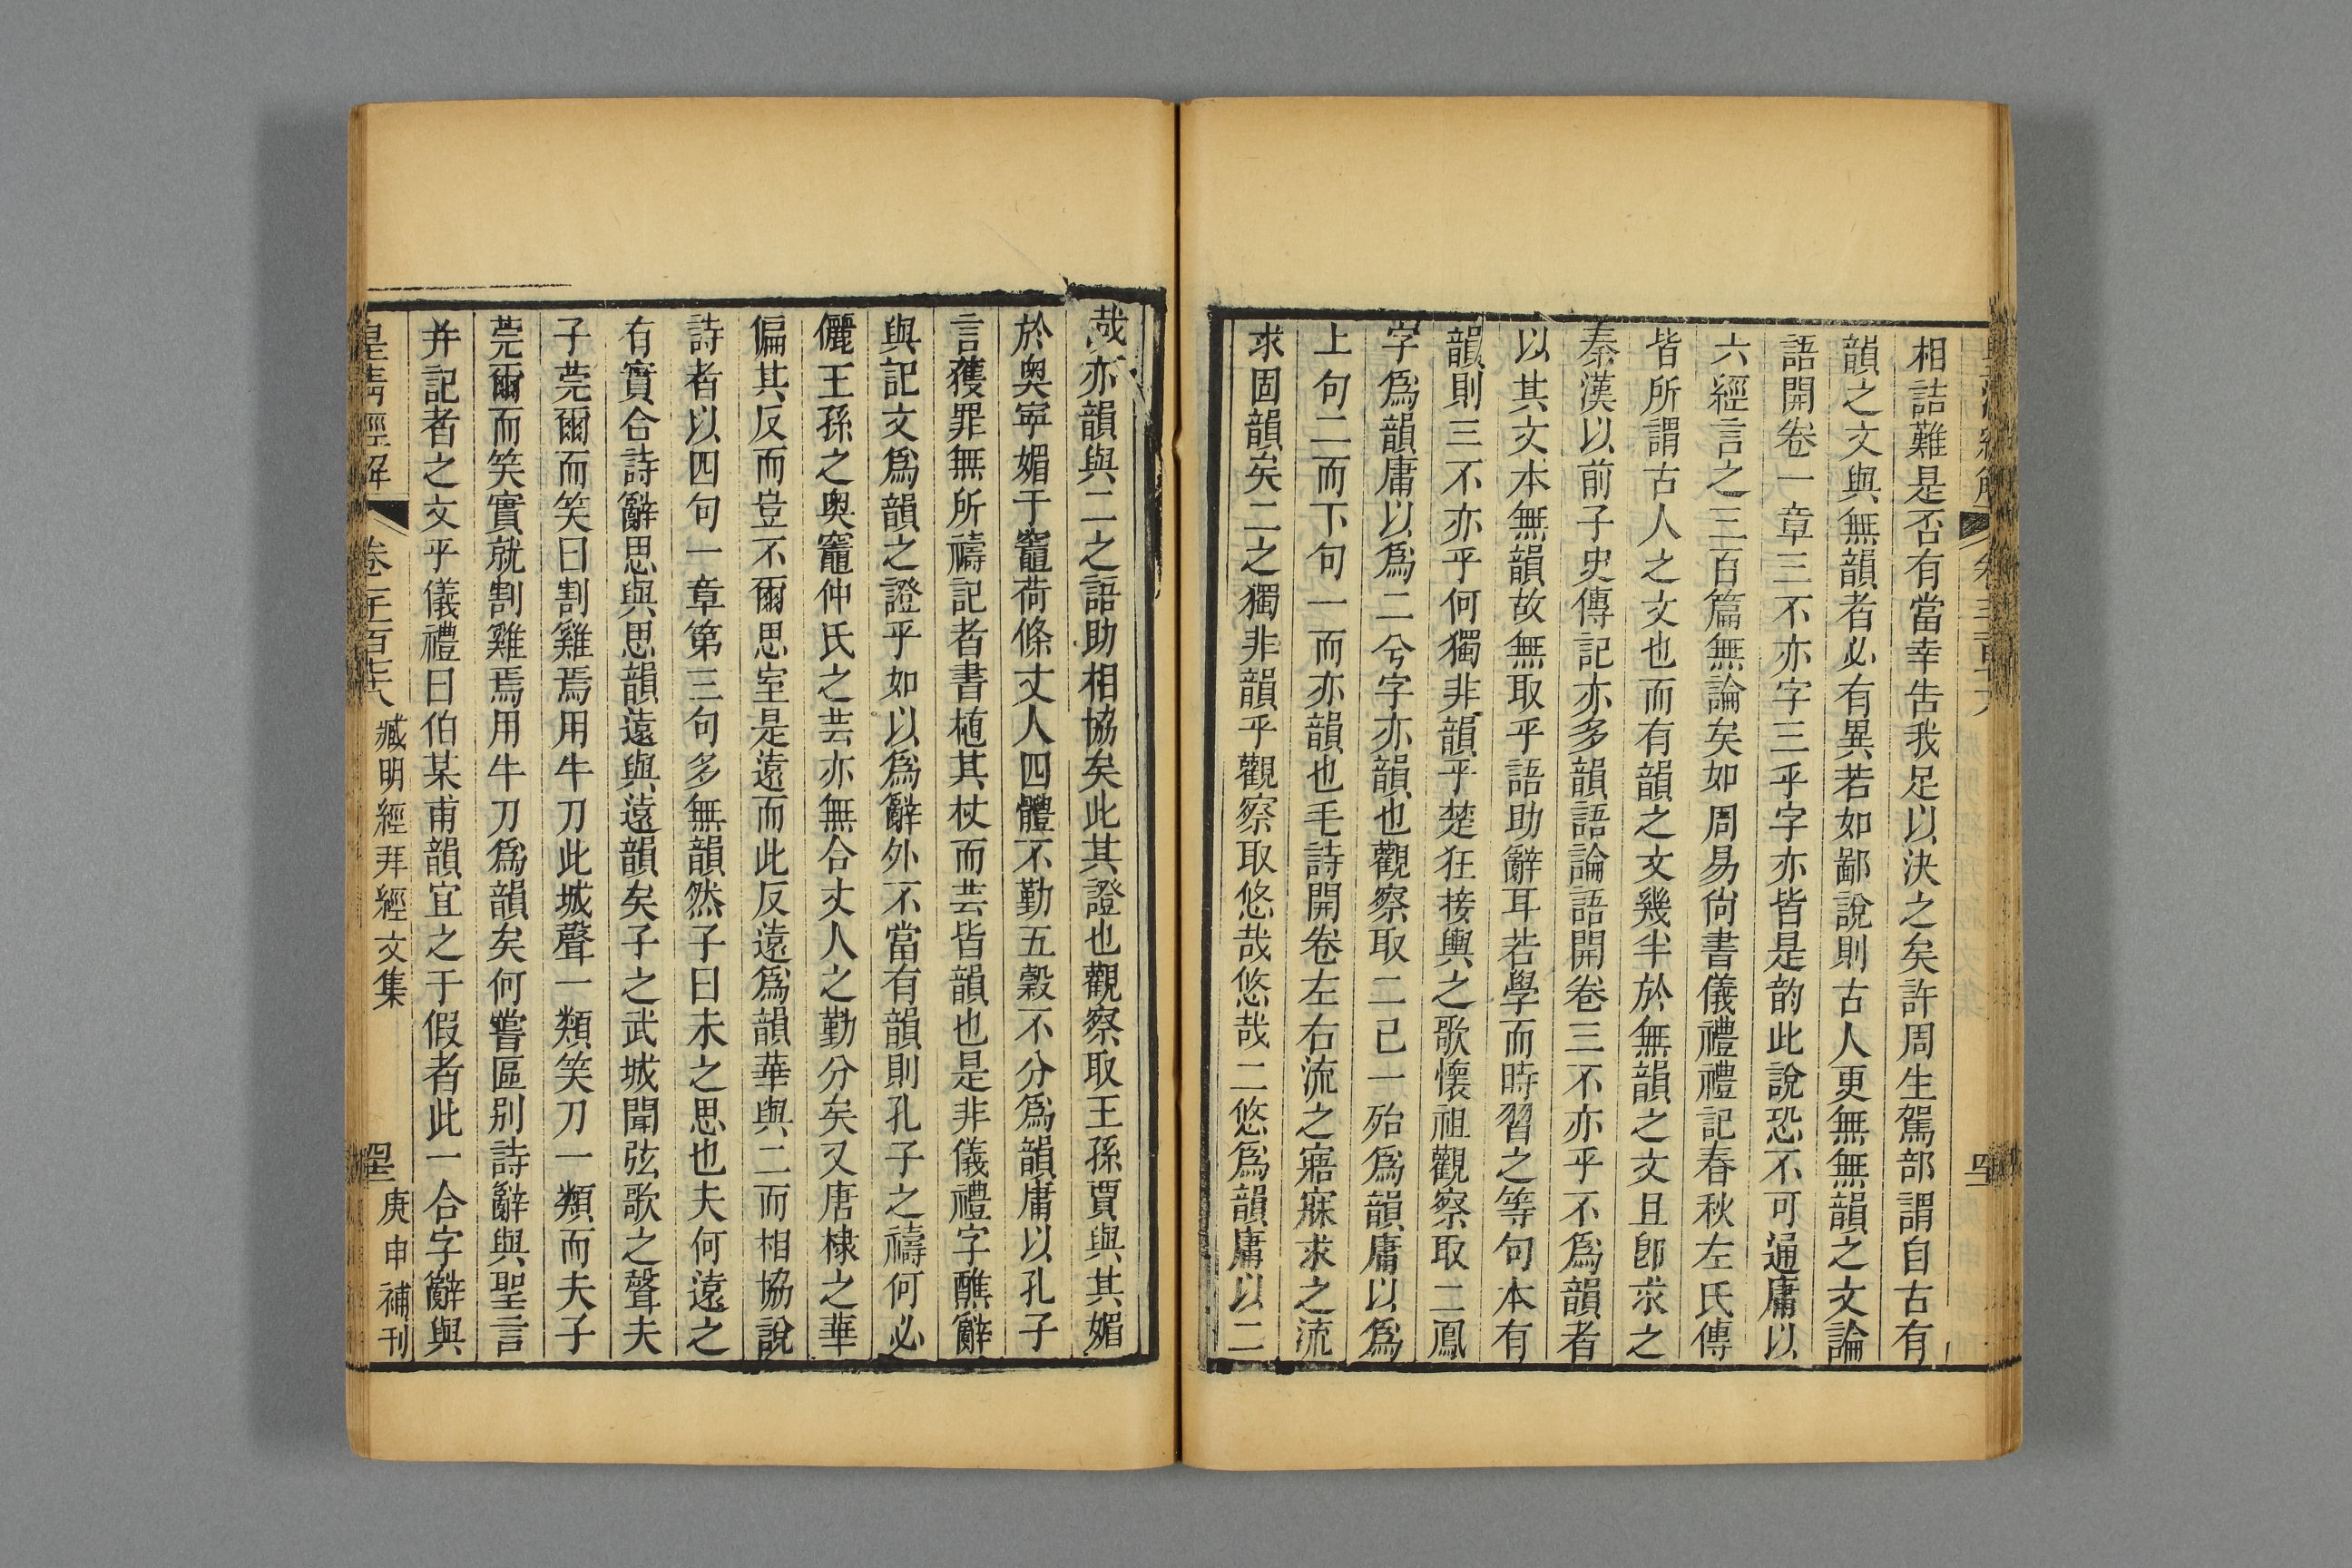 相詰難是否有當幸告我足以決之矣許周生駕部謂自古有
韻之文與無韻者必有異若如鄙說則古人更無無韻之文論
語開卷一章三不亦字三乎字亦皆是韵此說恐不可通庸以
六經言之三百篇無論矣如周易尙書儀禮禮記春秋左氏傳
皆所謂古人之文也而有韻之文幾半於無韻之文且卽求之
秦漢以前子史傳記亦多韻語論語開卷三不亦乎不爲韻者
以其文本無韻故無取乎語助辭耳若學而時習之等句本有
韻則三不亦乎何獨非韻乎楚狂接輿之歌懷祖觀察取二鳳
字爲韻庸以爲二兮字亦韻也觀察取二已一殆爲韻庸以爲
上句二而下句一而亦韻也毛詩開卷左右流之寤寐求之流
求固韻矣二之獨非韻乎觀察取悠哉悠哉二悠爲韻庸以二
哉亦韻與二之語助相協矣此其證也觀察取王孫賈與其媚
於奥寧媚于竈荷條丈人四體不勤五穀不分爲韻庸以孔子
言獲罪無所禱記者書植其杖而芸皆韻也是非儀禮字醮辭
與記文爲韻之證乎如以爲辭外不當有韻則孔子之禱何必
儷王孫之奥竈仲氏之芸亦無合丈人之勤分矣又唐棣之華
偏其反而豈不爾思室是遠而此反遠爲韻華與二而相協說
詩者以四句一章第三句多無韻然子曰未之思也夫何遠之
有實合詩辭思與思韻遠與遠韻矣子之武城聞弦歌之聲夫
子莞爾而笑曰割雞焉用牛刀此城聲一類笑刀一類而夫子
莞爾而笑實就割雞焉用牛刀爲韻矣何嘗區別詩辭與聖言
并記者之文乎儀禮曰伯某甫韻宜之于假者此一合字辭與
皇淸經解
卷
臧明經拜經文集
庚申補刊